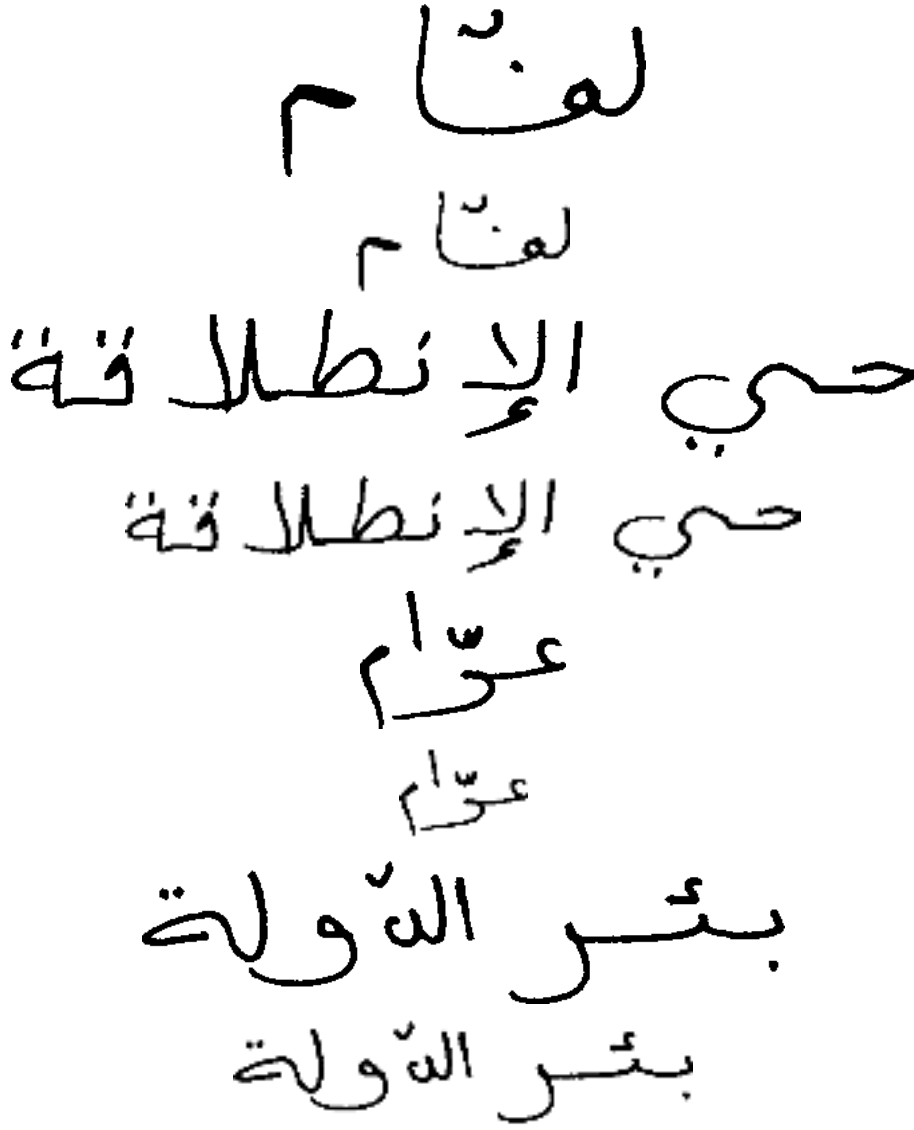 لفّام
لفّام
حي الإنطلاقة
حي الإنطلاقة
عرّام
عرّام
بئر الدّولة
بئر الدّولة